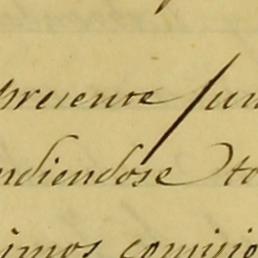 presente Jun
ndiendose to
imos comisio